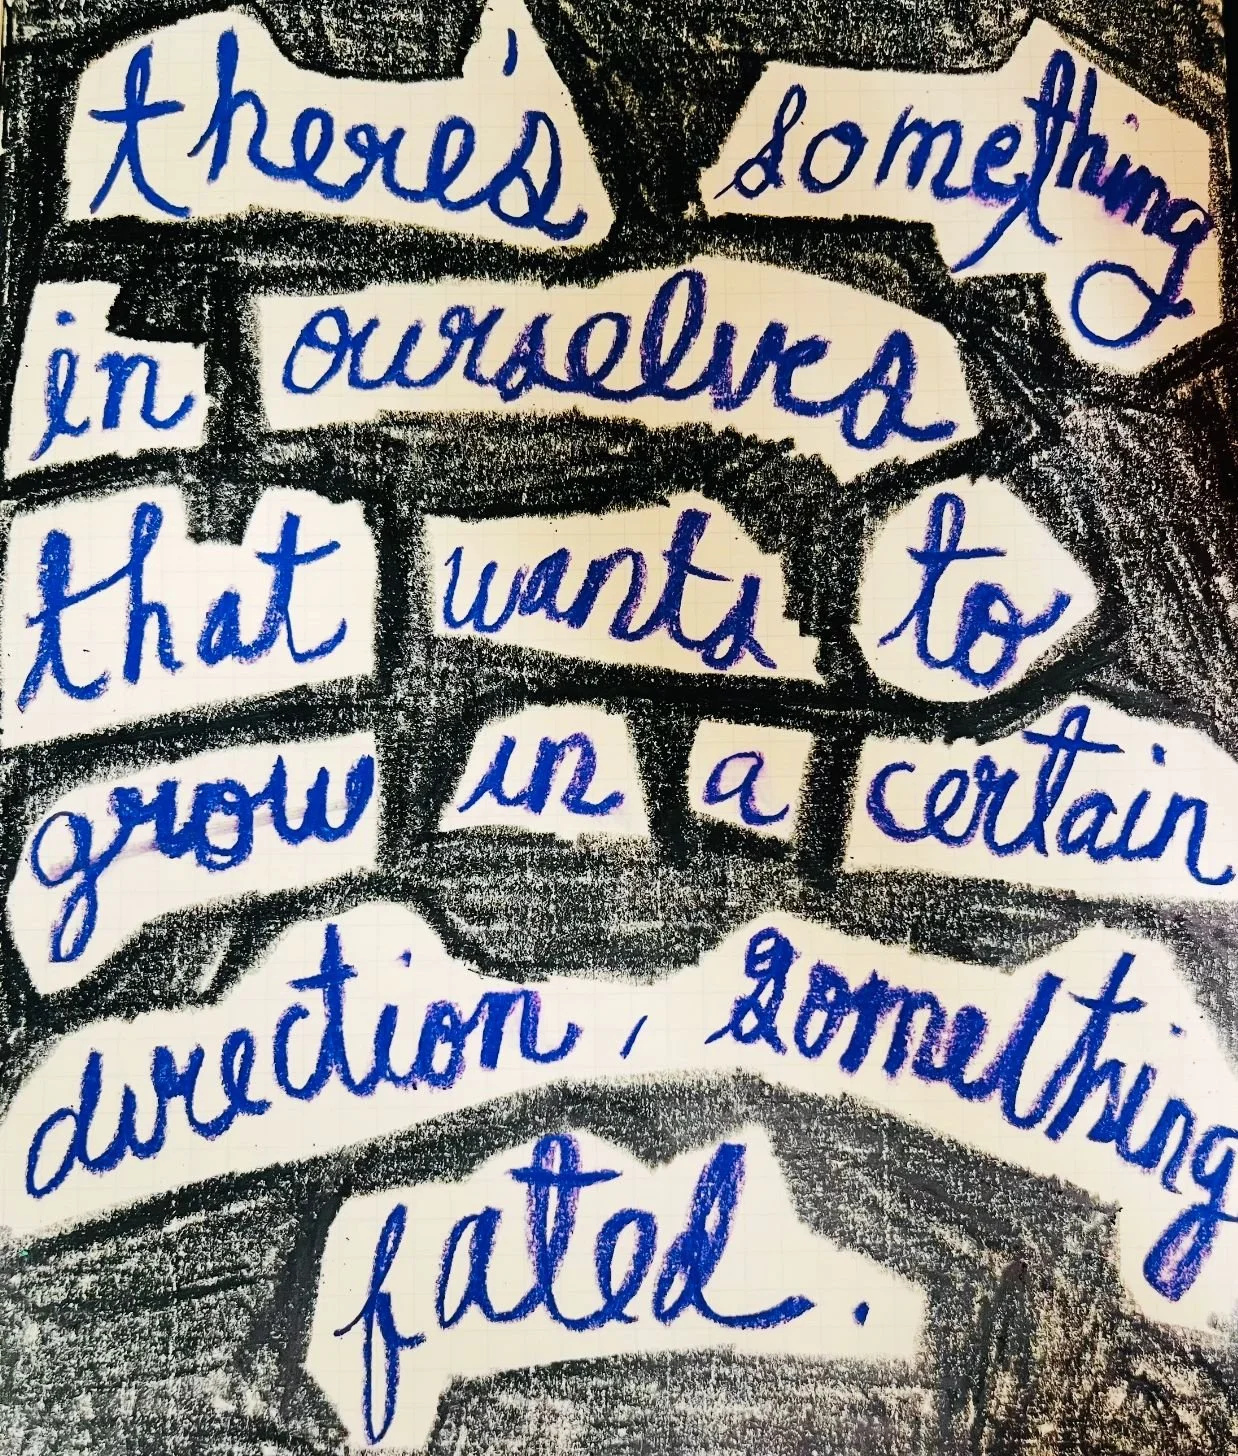 there's something
in ourselves
that wants to
grow in a certain
direction, something
fated.